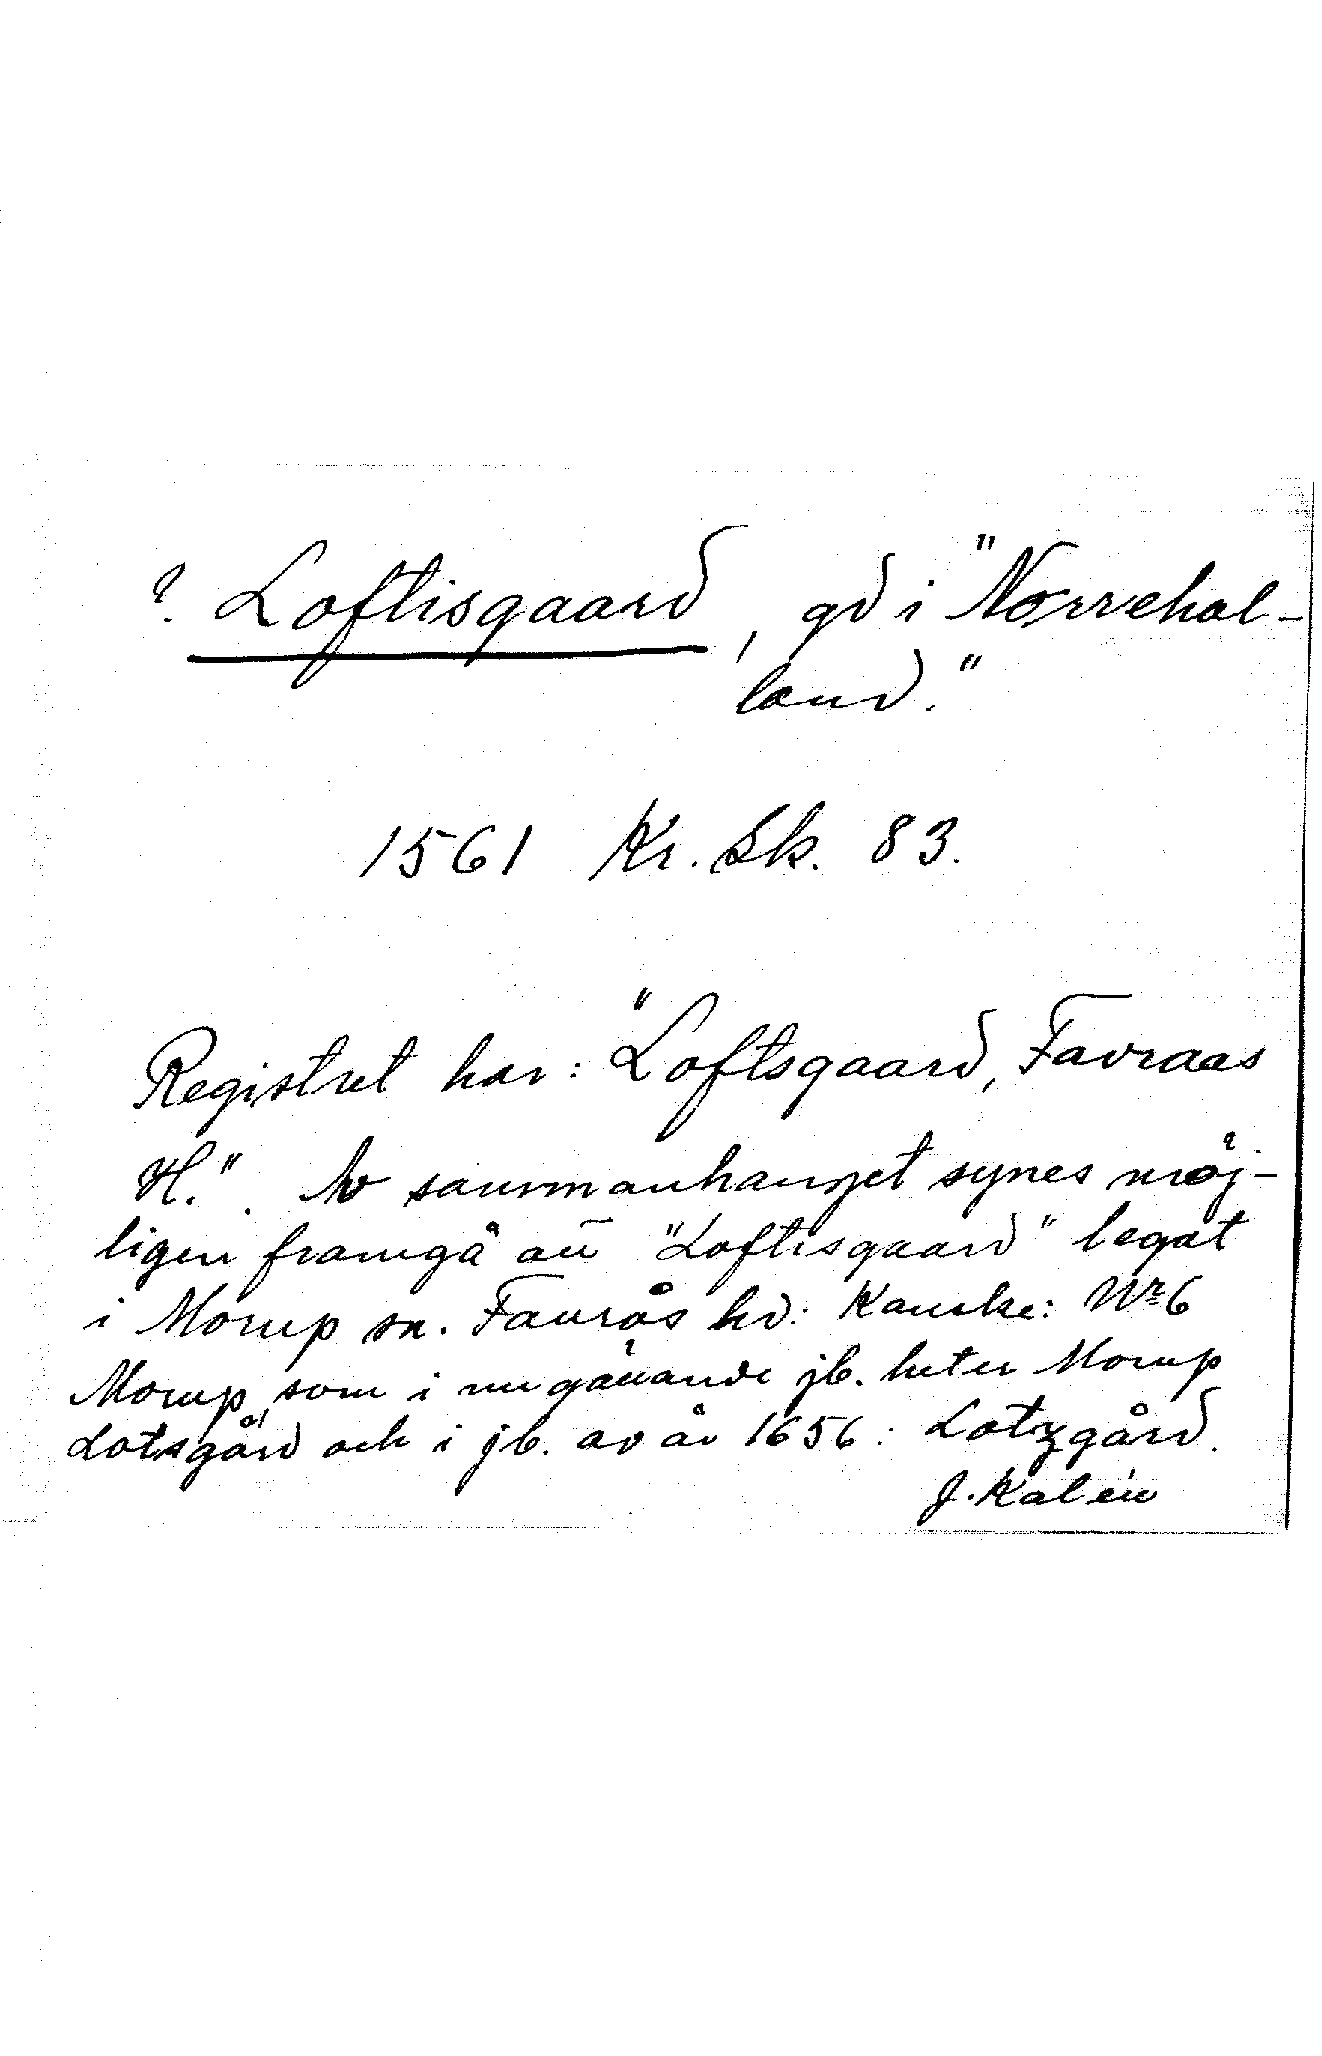 ? Loftisgaard, gd i "Nørrehal-
land."
1561 Kr. Sk. 83.
Registret har: "Loftsgaard, Favraas
H.". Av sammanhanget synes möj-
ligen framgå att "Loftisgaard" legat
i Morup sn. Faurås hd: Kanske: Nr 6
Morup, som i nugällande jb. heter Morup
Lotsgård och i jb. av år 1656: Lotzgård.
J. Kalén